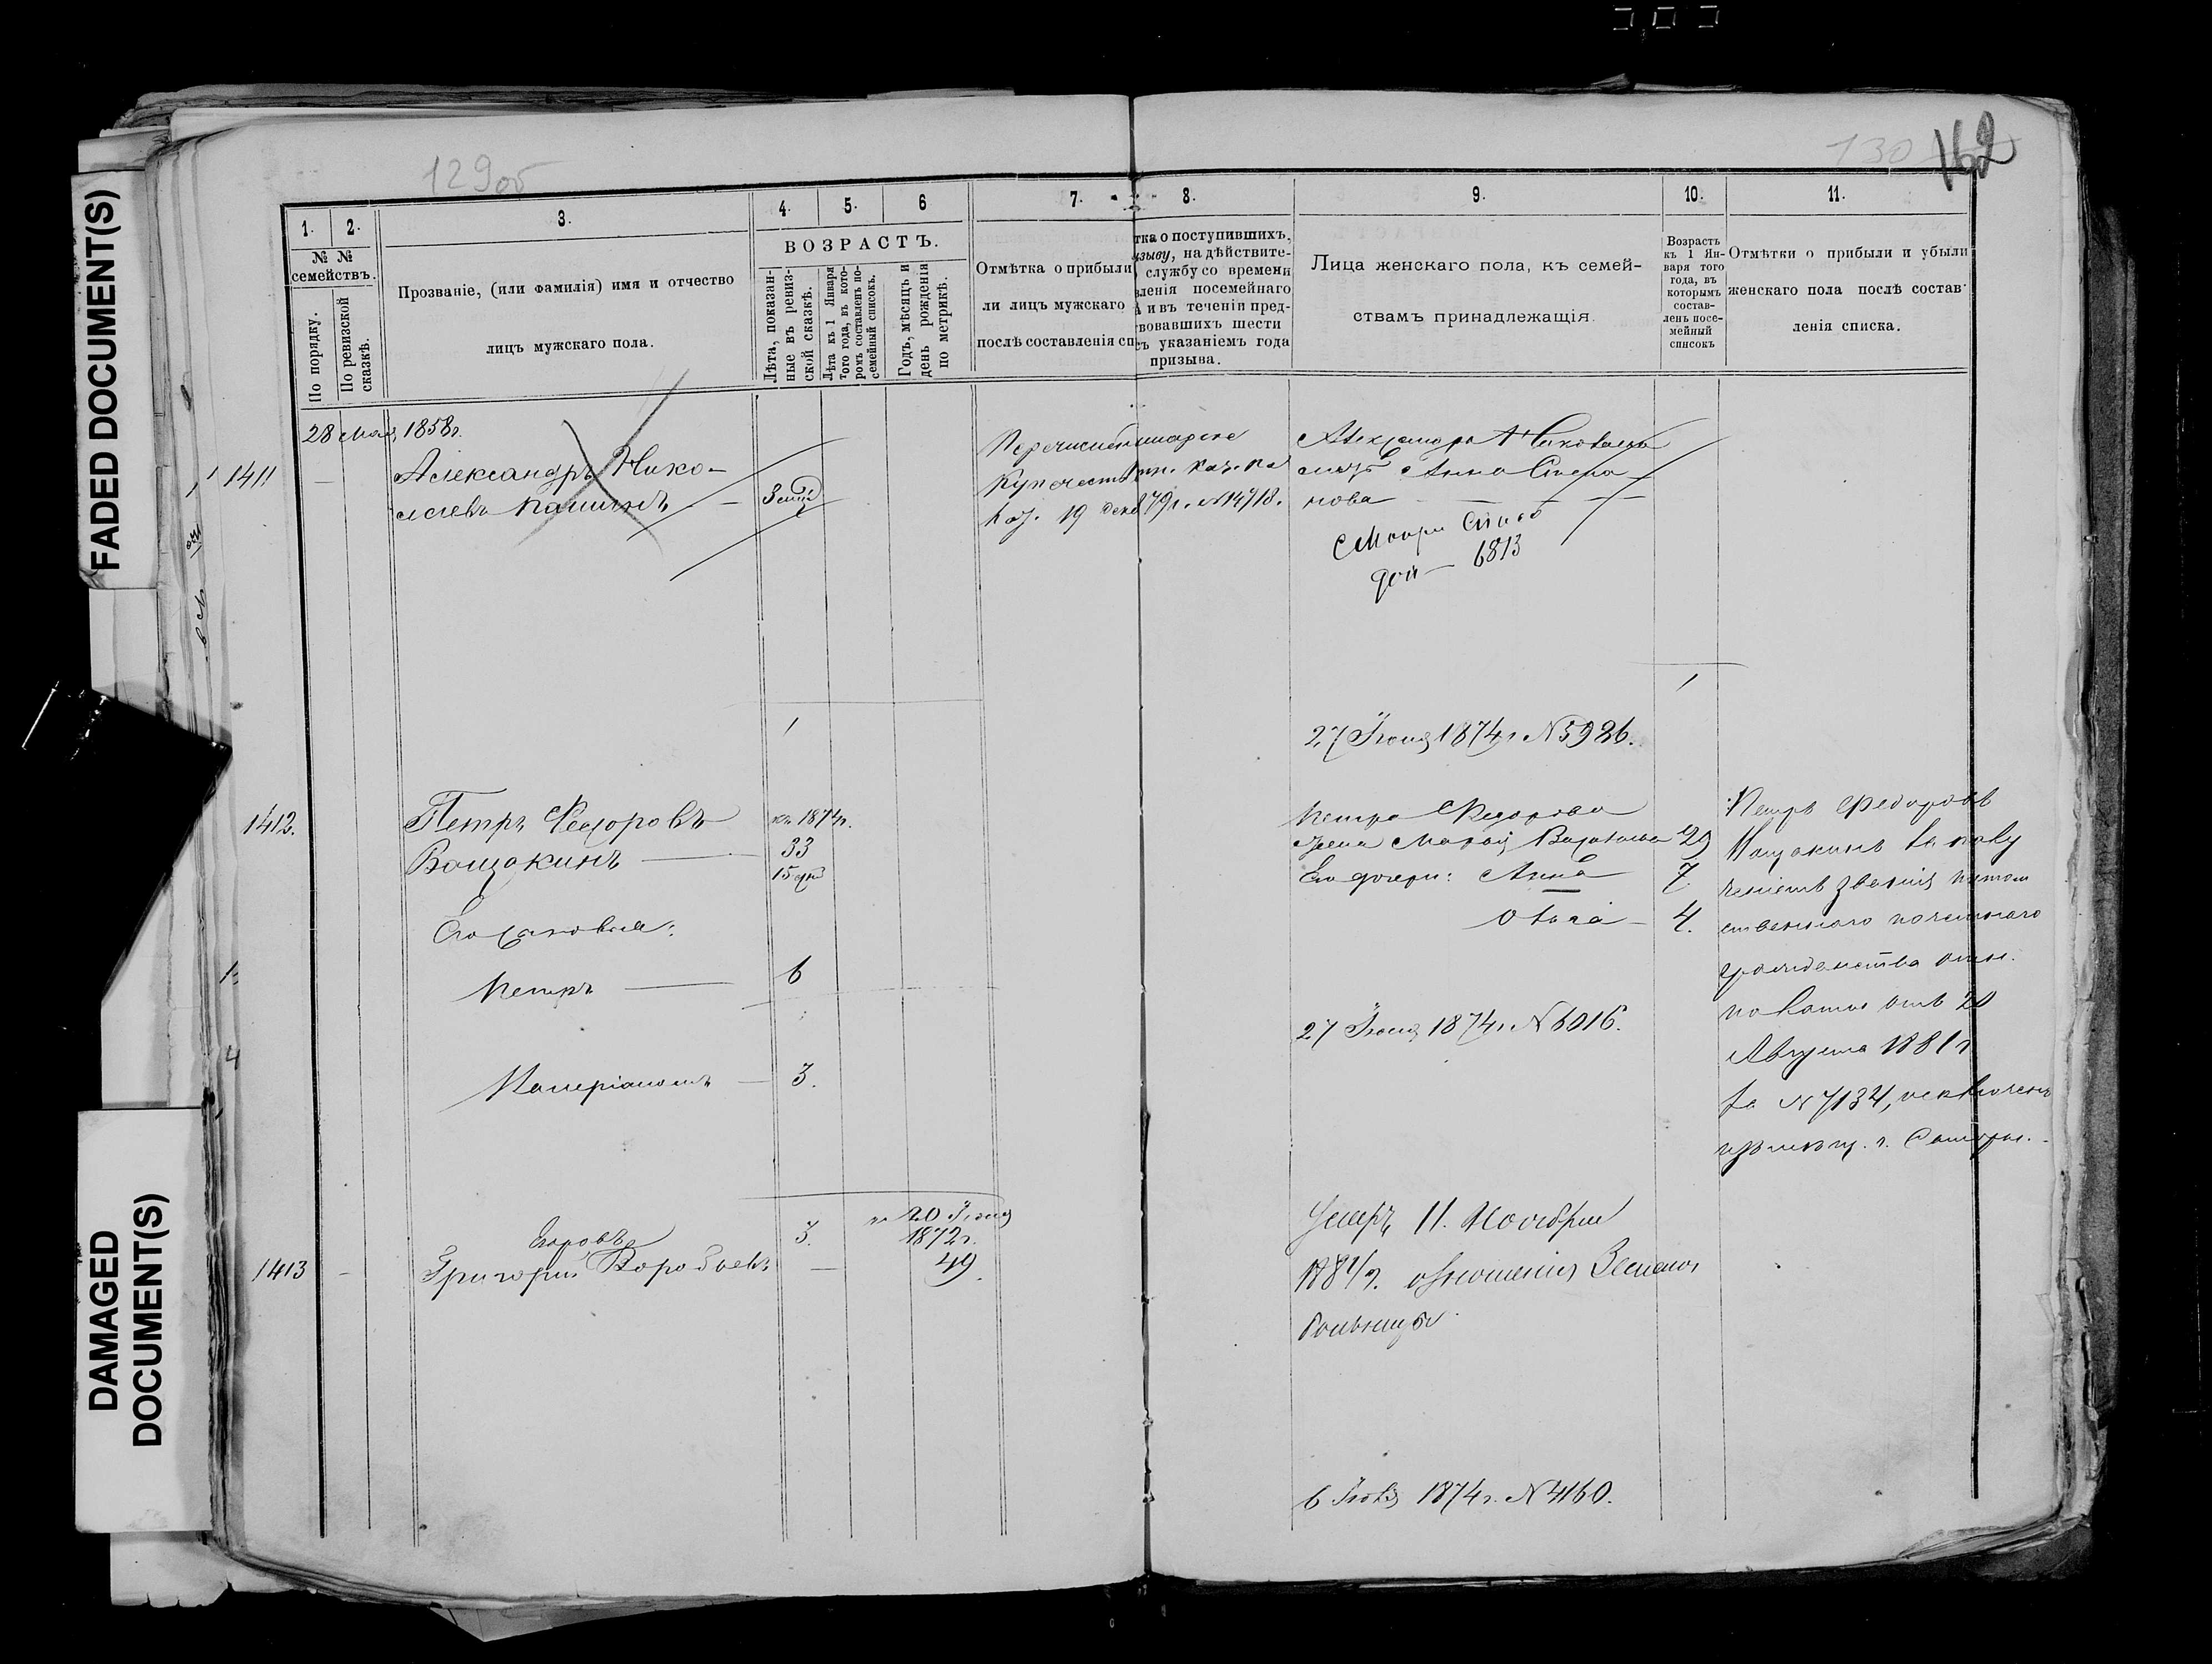 FADED DOCUMENT(S)
DAMAGED
DOCUMENT(S)
129об
130
162
1. 2. 3. 4. 5. 6 7. 8. 9. 10. 11.
№ №
семействъ.
По порядку.
По ревизской
сказкѣ.
Прозваніе, (или фамилія) имя и отчество
лицъ мужскаго пола.
ВОЗРАСТЪ.
Лѣта, показан-
ные въ ревиз-
ской сказкѣ.
Лѣта къ 1 Января
того года, въ кото-
ромъ составленъ по-
семейный списокъ.
Годъ, мѣсяцъ и
день рожденія
по метрикѣ.
Отмѣтка о прибыли
ли лицъ мужскаго
послѣ составленія сп
тка о поступившихъ,
изыву, на дѣйствите-
службу со времени
вленія посемейнаго
и въ теченіи пред-
вовавшихъ шести
съ указаніемъ года
призыва.
Лица женскаго пола, къ семей-
ствамъ принадлежащія.
Возрасть
къ 1 Ян-
варя того
года, въ
которымъ
состав-
ленъ посе-
мейный
списокъ
Отмѣтки о прибыли и убыли
женскаго пола послѣ состав-
ленія списка.
28 мая 1858г.
1411
Александръ Нико-
лаевъ
19 дек 879г. №14918.
Александра Николаева
мать Анна Степа
нова
6813
27 Іюня 1874г №5986.
1412.
Петръ Федоровъ
Ващакинъ
къ 1874г.
33
Его сыновья:
Петръ 6
3.
Петра Федорова
жена Марья 29
Его дочери: Анна 7
Ольга 4.
27 Іюня 1874г. №6016.
Петръ Федоровъ
Ващакинъ
звания потом
ственного почетнаго
гражданства
от 20
Августа 1881г
за №7134, исключенъ
1413
Егоровъ
Григорій Воробьевъ
3.
20 Іюня
1872г.
49
Умеръ 11. Ноября
1881г. отношенія Земской
больницы
6 Іюня 1874г. №4160.